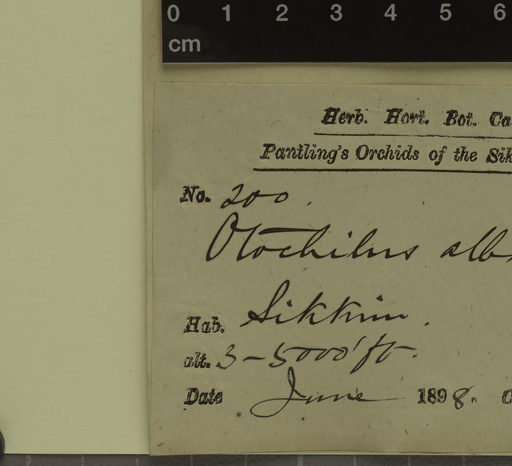 0 1 2 3 4 5 6
cm
Herb. Hort. Bot. Ca
Pantling's Orchids of the Sik
No. 200.
Otochilus alb
Hab. Sikkim.
alt. 3-5000' ft.
Date June 1898. C